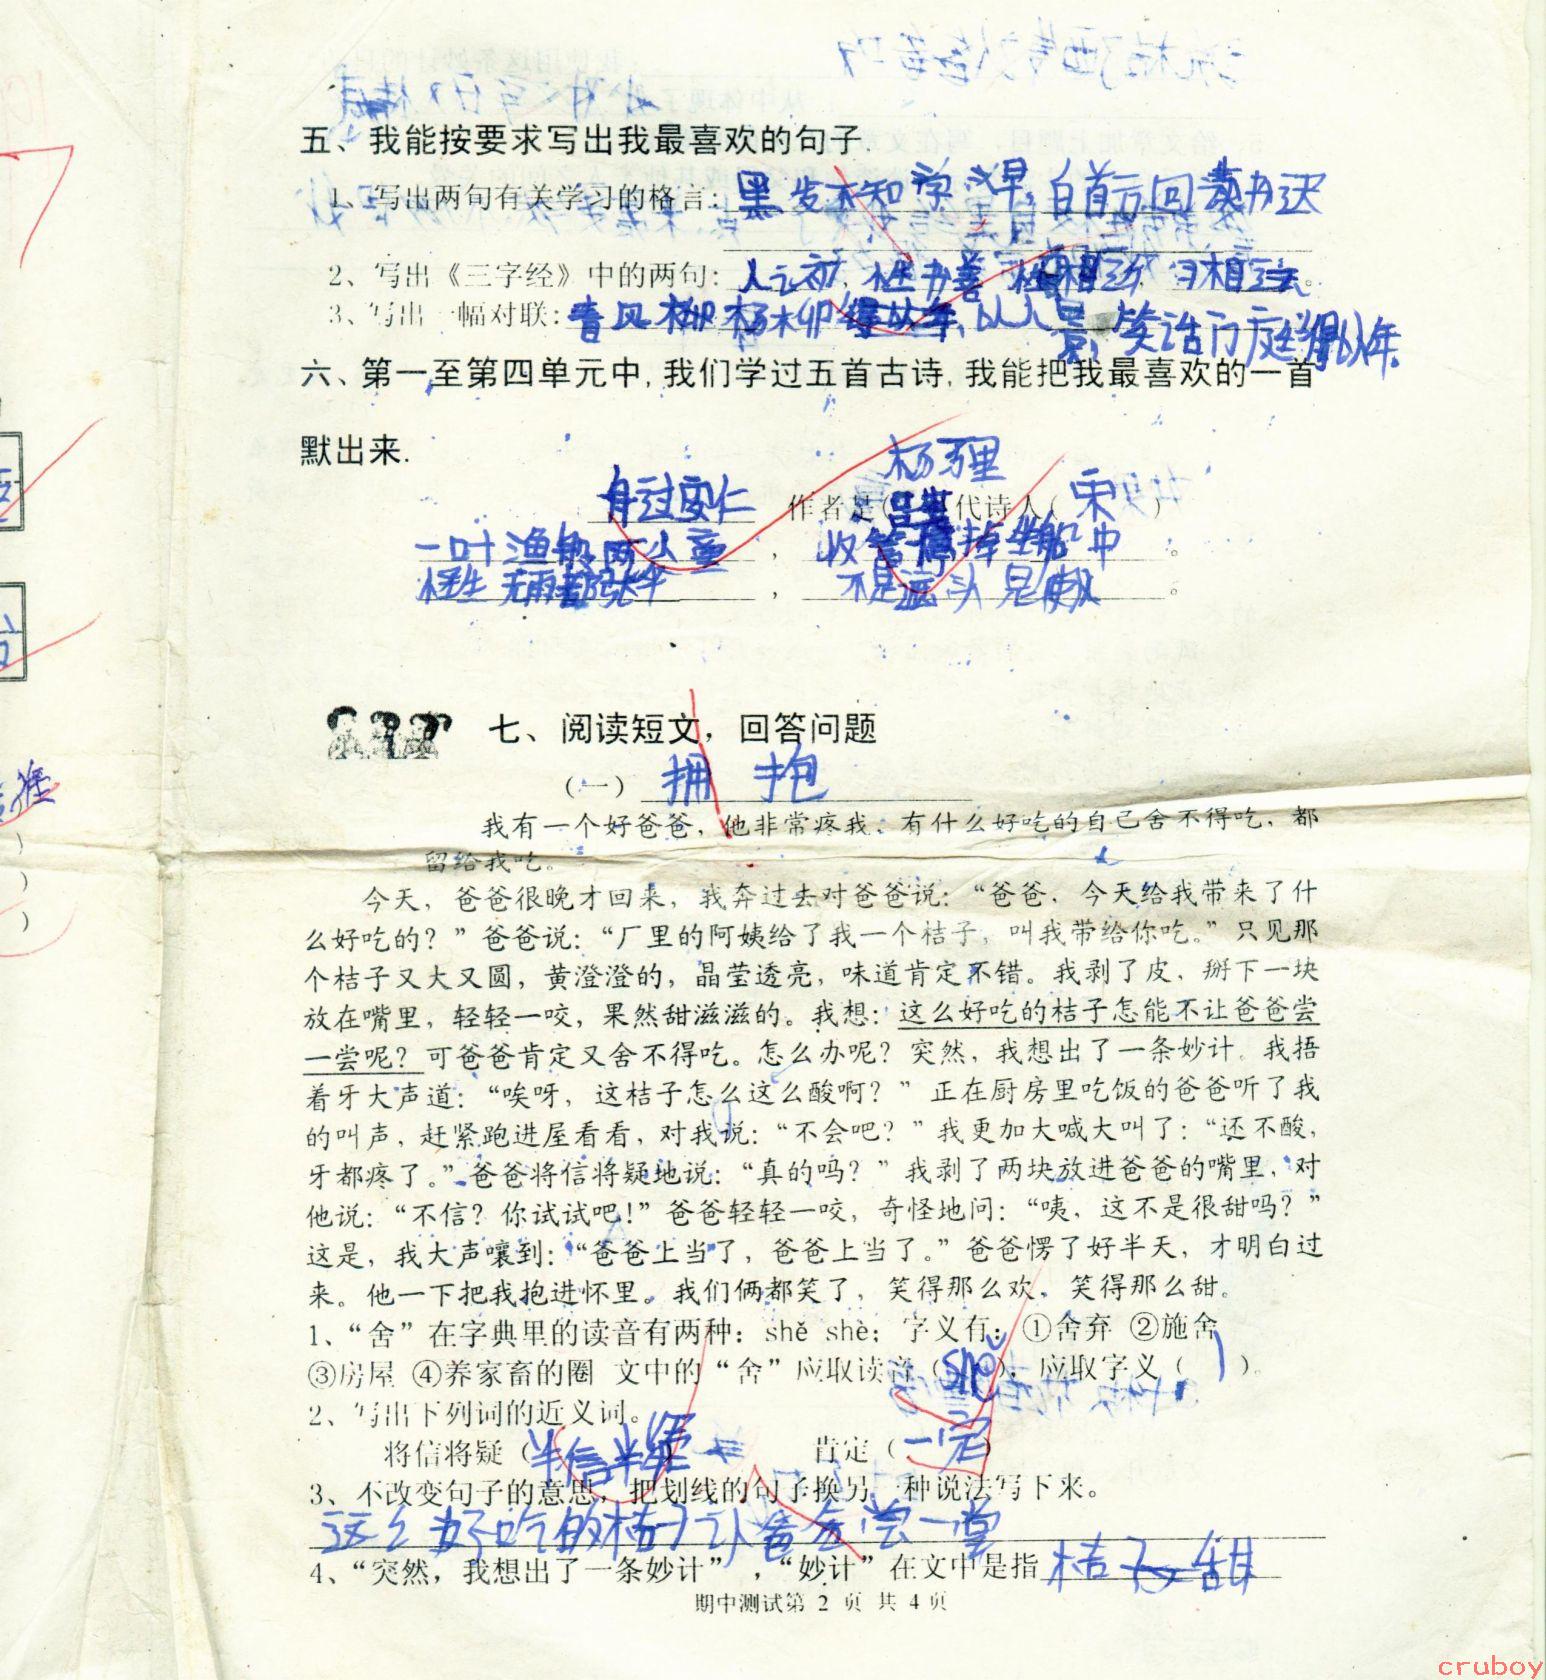 五、我能按要求写出我最喜欢的句子.
1、写出两句有关学习的格言：黑发不知 学 早，白首方 回 读书迟
2、写出《三字经》中的两句：人之初，性 善 性相 习相 。
3、写出一幅对联：春风 柳 杨 笑话门庭 年。
六、第一至第四单元中,我们学过五首古诗,我能把我最喜欢的一首
默出来.
杨 里
舟过安仁 作者是( 代诗人( 宋 )
一叶渔船两小童 ， 收 停 坐船中 。
怪生无雨都张伞 ， 不是遮头是使风 。
七、阅读短文，回答问题
（一） 拥 抱
我有一个好爸爸，他非常疼我。有什么好吃的自己舍不得吃，都
留给我吃。
今天，爸爸很晚才回来，我奔过去对爸爸说：“爸爸，今天给我带来了什
么好吃的？”爸爸说：“厂里的阿姨给了我一个桔子，叫我带给你吃。”只见那
个桔子又大又圆，黄澄澄的，晶莹透亮，味道肯定不错。我剥了皮，掰下一块
放在嘴里，轻轻一咬，果然甜滋滋的。我想：这么好吃的桔子怎能不让爸爸尝
一尝呢？可爸爸肯定又舍不得吃。怎么办呢？突然，我想出了一条妙计。我捂
着牙大声道：“唉呀，这桔子怎么这么酸啊？”正在厨房里吃饭的爸爸听了我
的叫声，赶紧跑进屋看看，对我说：“不会吧？”我更加大喊大叫了：“还不酸，
牙都疼了。”爸爸将信将疑地说：“真的吗？”我剥了两块放进爸爸的嘴里，对
他说：“不信？你试试吧！”爸爸轻轻一咬，奇怪地问：“咦，这不是很甜吗？”
这是，我大声嚷到：“爸爸上当了，爸爸上当了。”爸爸愣了好半天，才明白过
来。他一下把我抱进怀里。我们俩都笑了，笑得那么欢，笑得那么甜。
1、“舍”在字典里的读音有两种：shě shè；字义有：①舍弃 ②施舍
③房屋 ④养家畜的圈 文中的“舍”应取读音（ ），应取字义（ 1 ）。
2、写出下列词的近义词。
将信将疑（半信半疑） 肯定（一定）
3、不改变句子的意思，把划线的句子换另一种说法写下来。
这么好吃的桔子让爸爸尝一尝
4、“突然，我想出了一条妙计”，“妙计”在文中是指 桔子 甜
期中测试第 2 页 共 4 页
cruboy